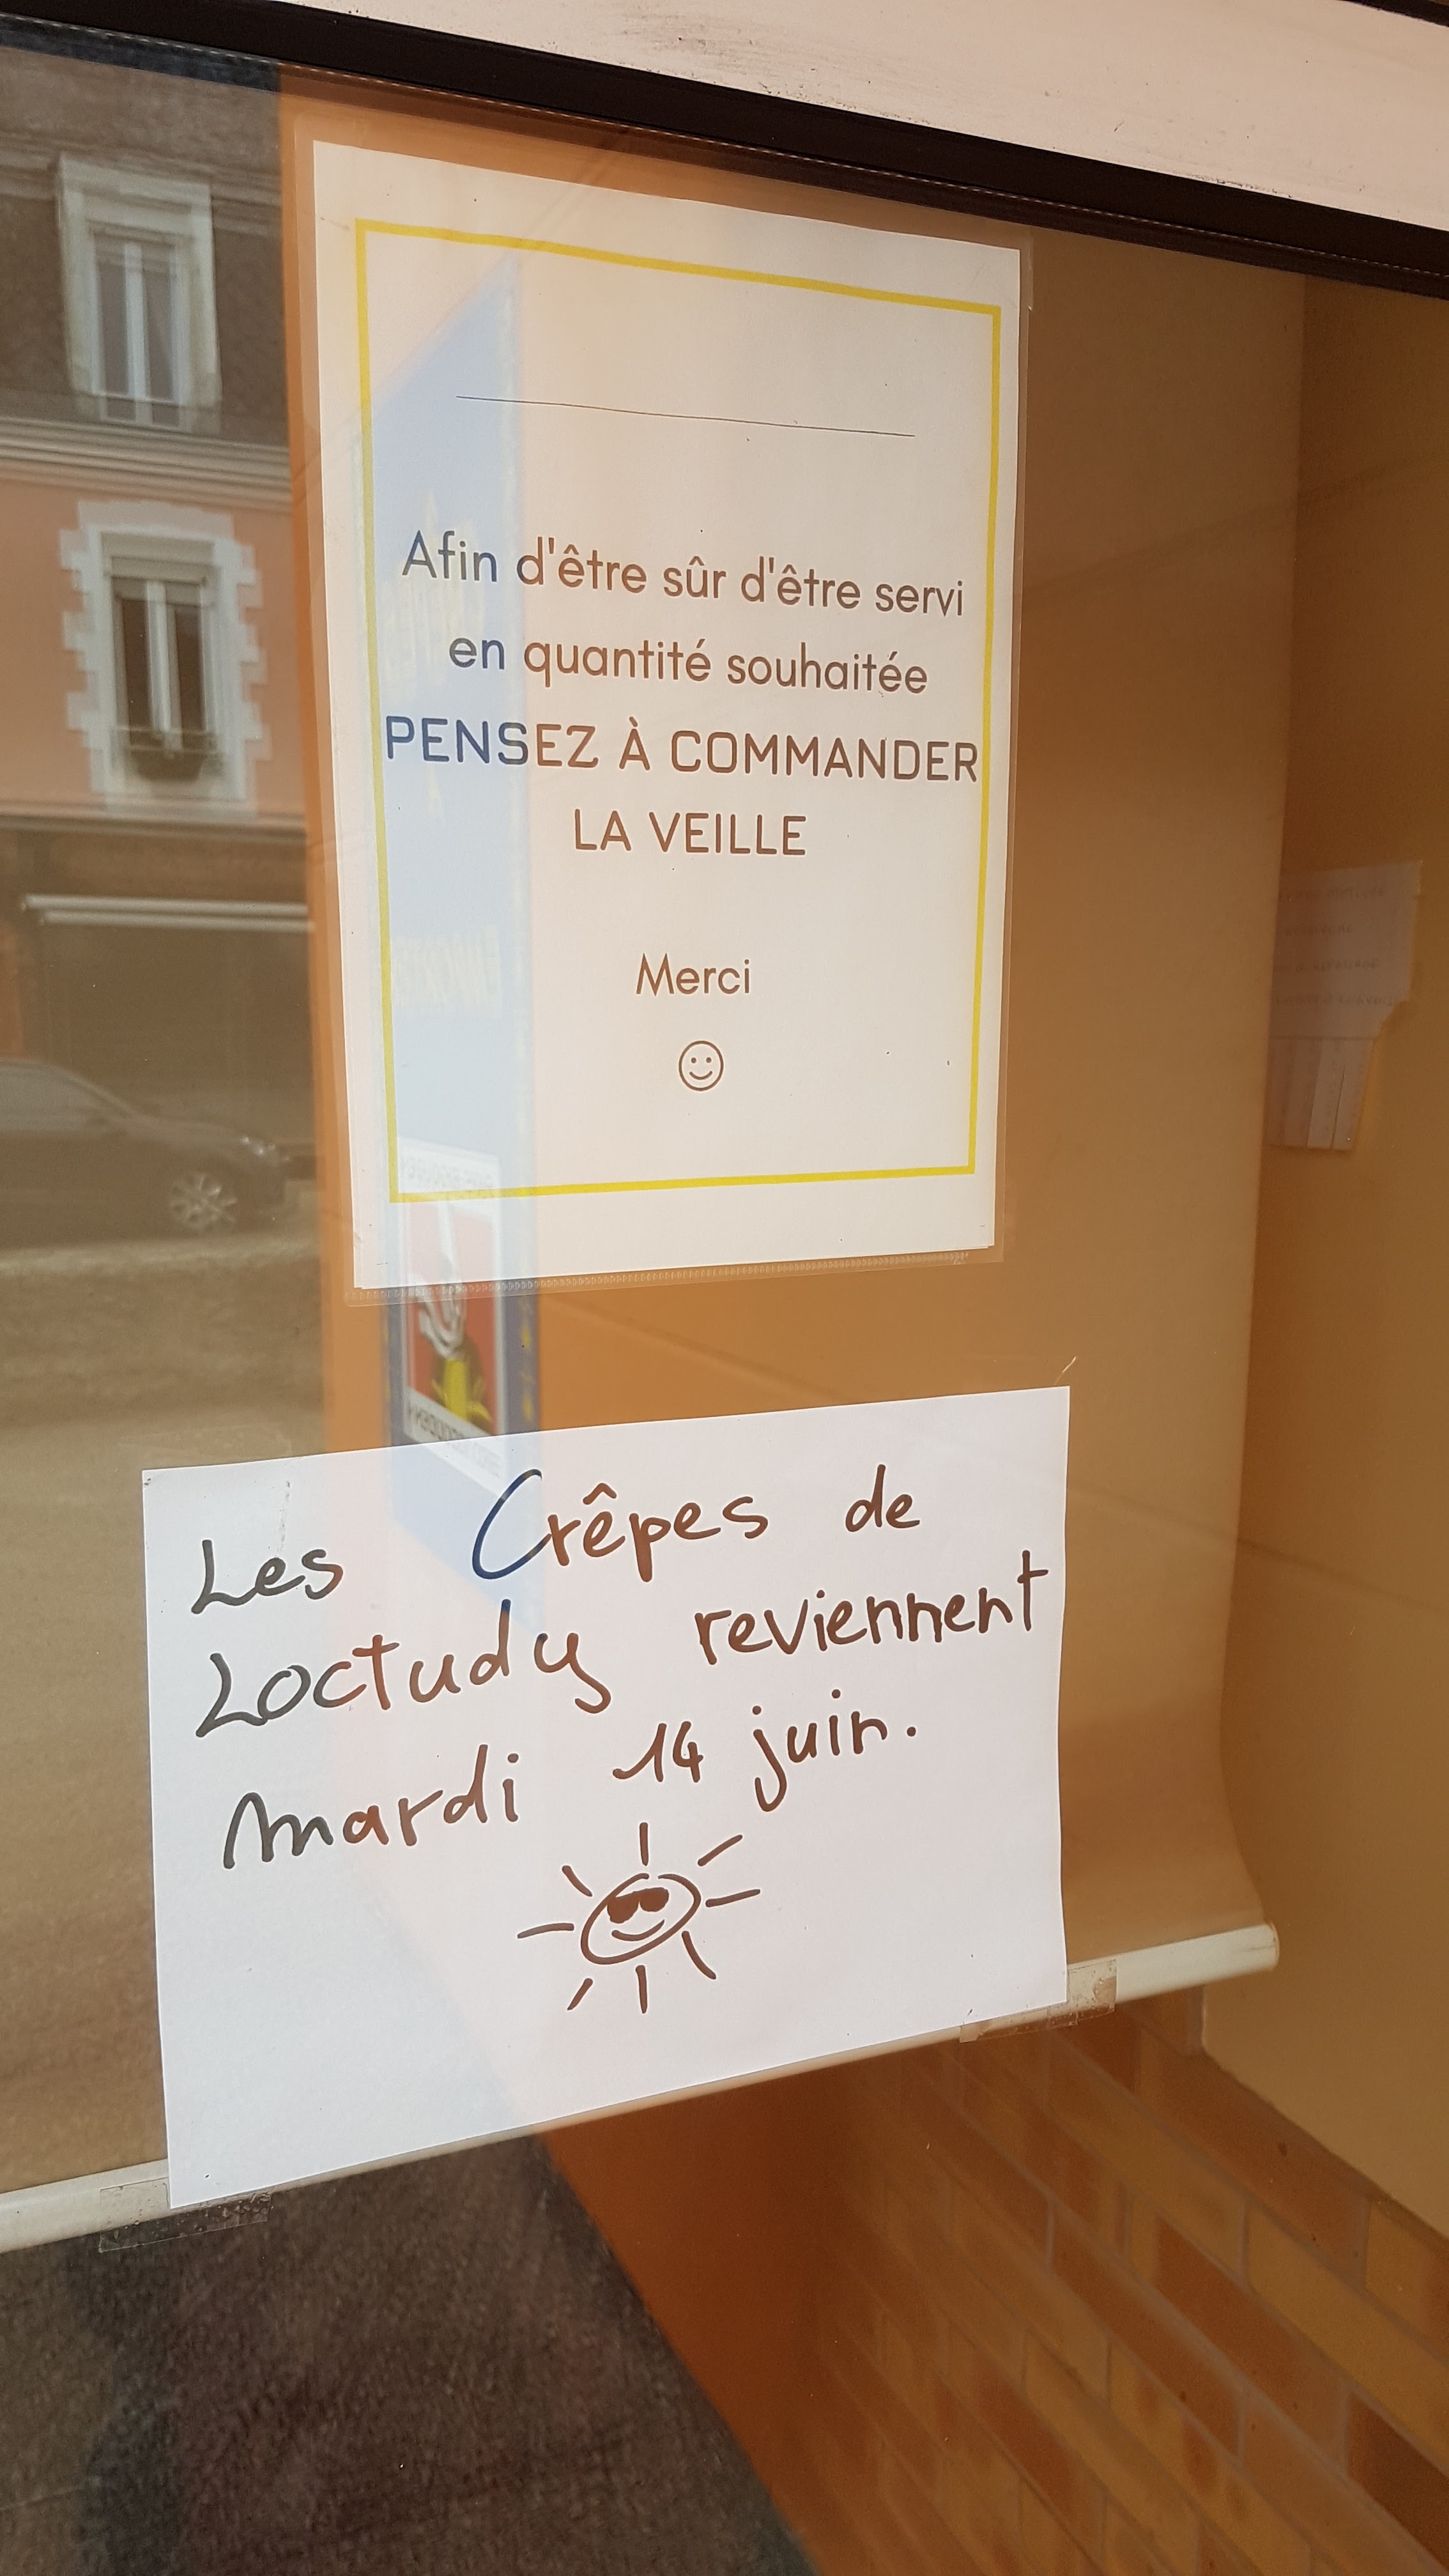 Afin d'être sûr d'être servi
en quantité souhaitée
PENSEZ À COMMANDER
LA VEILLE
Merci
Les Crêpes de
Loctudy reviennent
mardi 14 juin.